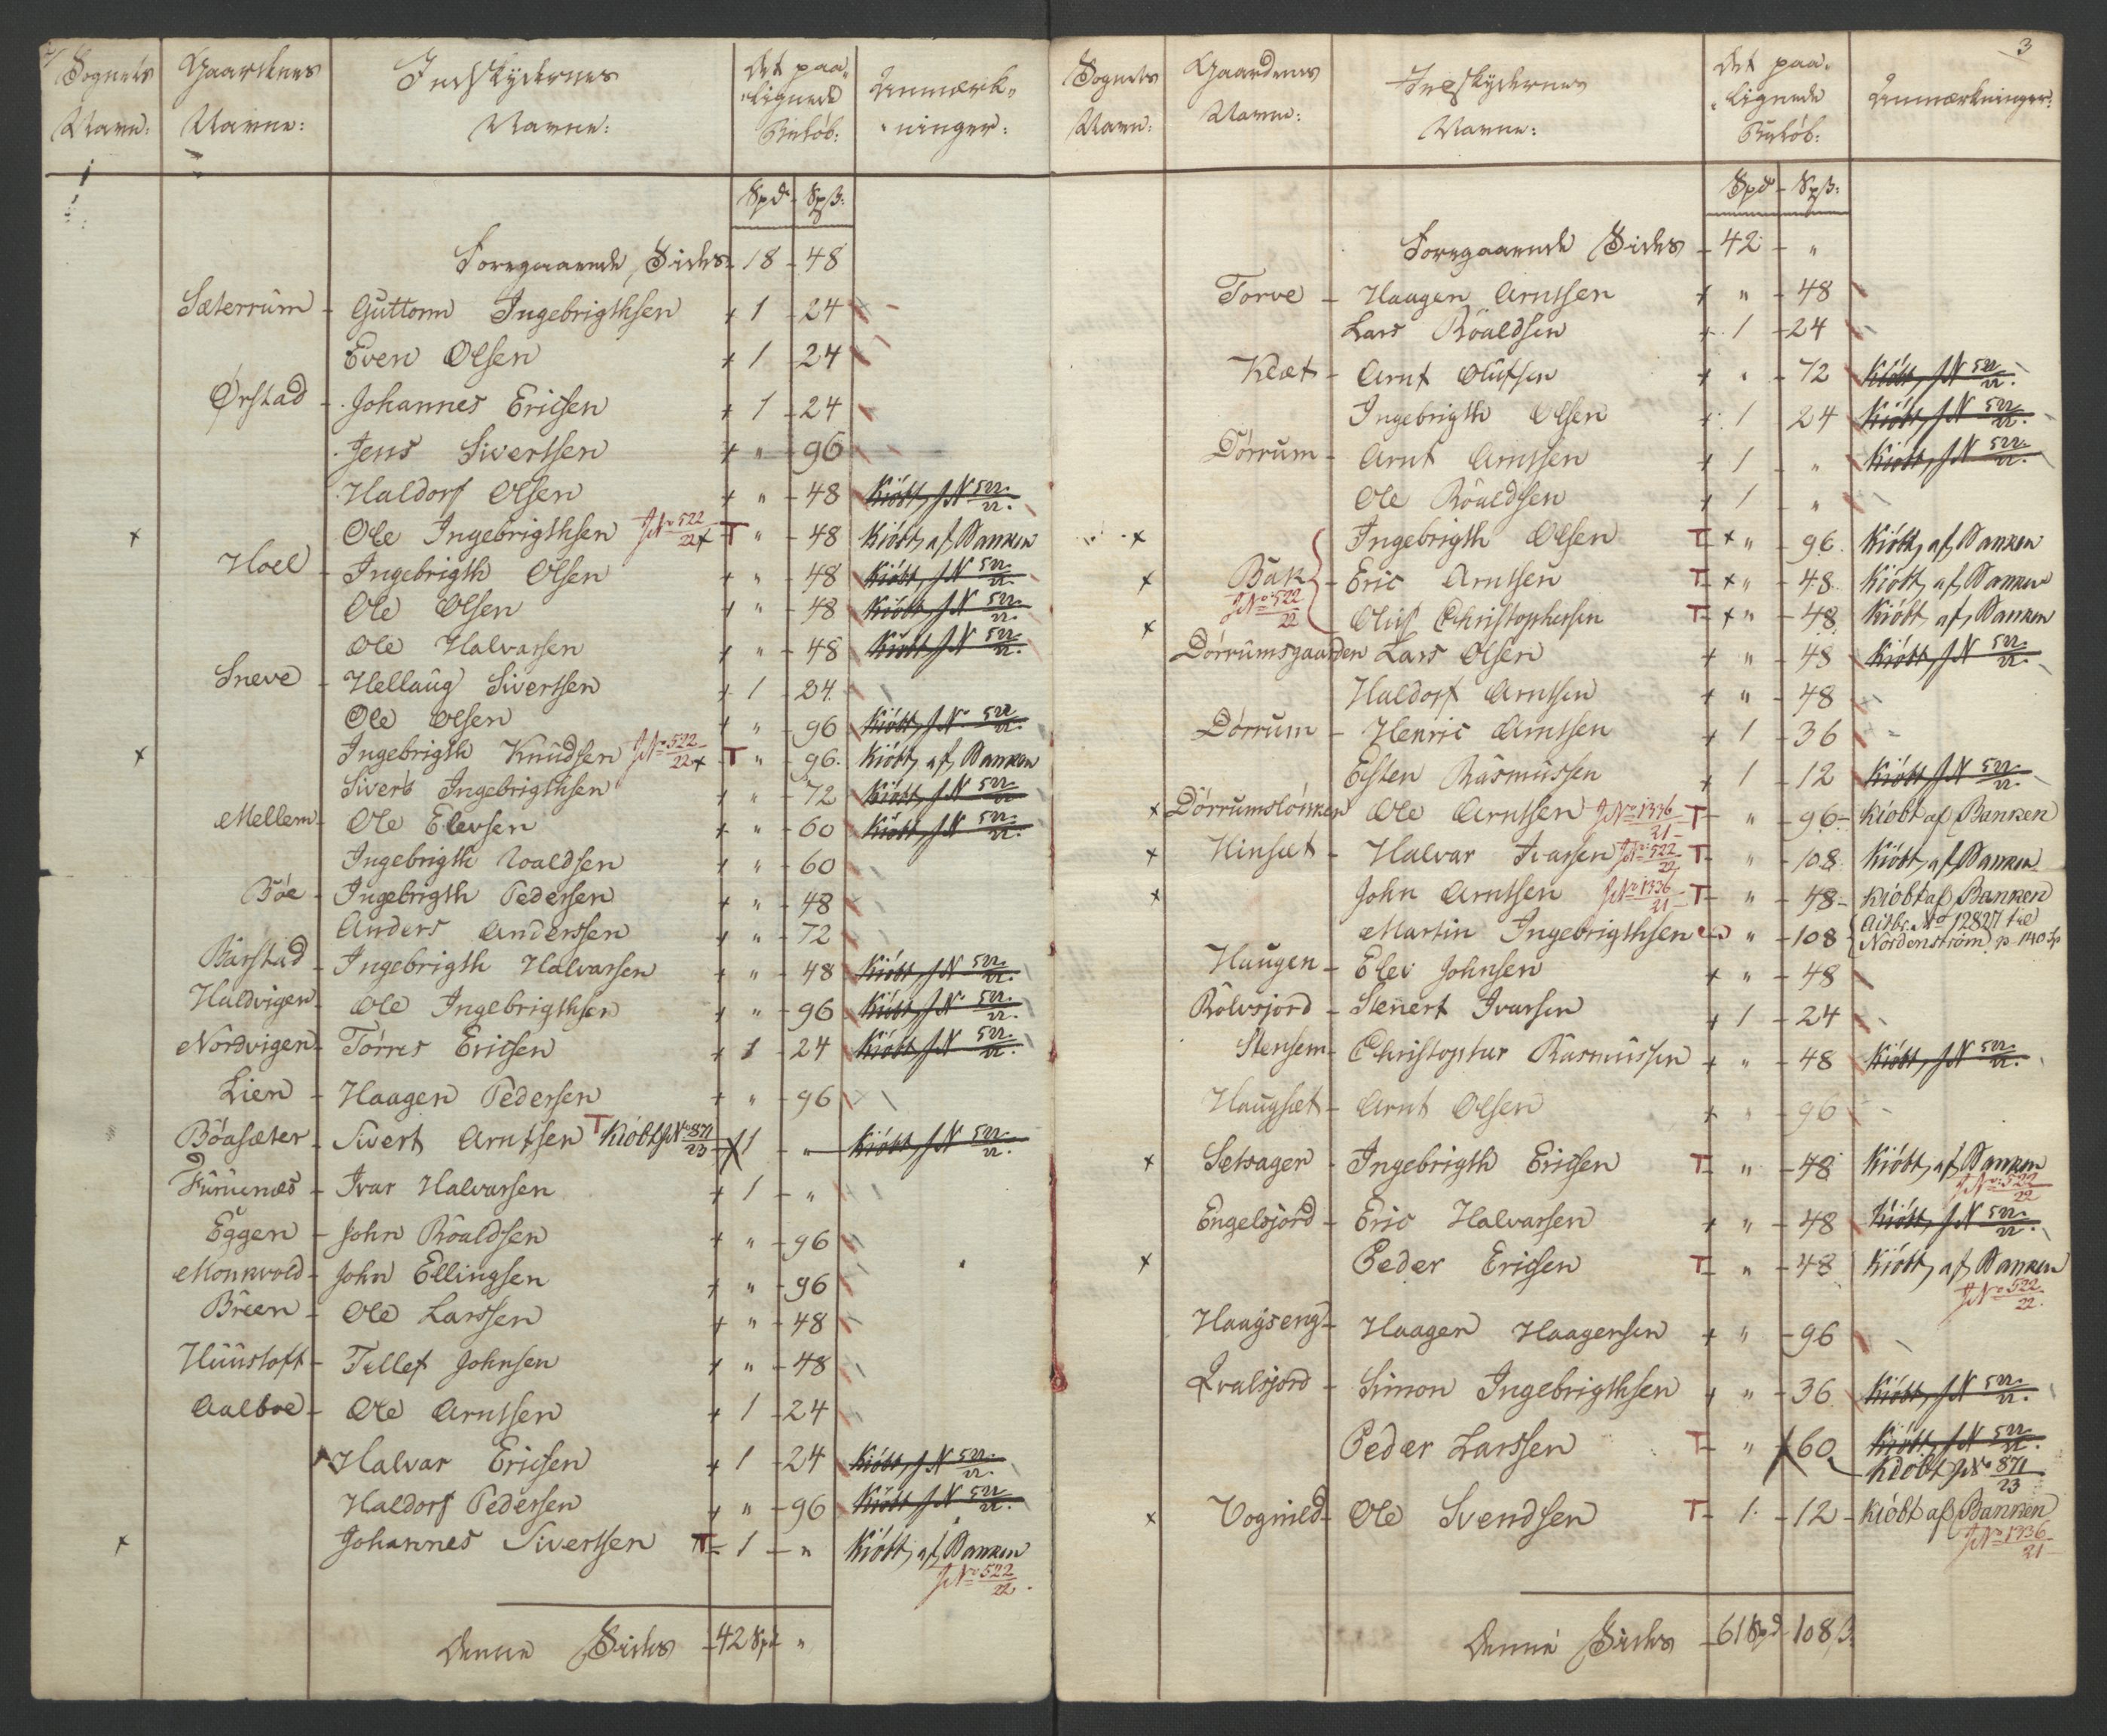 2/
Sognets Gaardenes Indskydernes Det paa- Anmærk-
Navn: Navne: Navne: lignede ninger:
Beløb:
Spd Spß:
Foregaaende Sides 18 48
Sæterrum - Guttorm Ingebrigthsen + 1 24
Even Olsen + 1 24
Ørstad - Johannes Ericsen + 1 24
Jens Sivertsen + " 96
Haldorf Olsen + " 48 Kióbt, J N 522/22.
+ Ole Ingebrigthsen J No 522/22 + T " 48 Kióbt, af Banken
Hoel - Ingebrigth Olsen + " 48 Kióbt, J N 522/22.
Ole Olsen + " 48 Kióbt, J N 522/22.
Ole Halvarsen + " 48 Kióbt, J N 522/22.
Sneve - Hellaug Sivertsen + 1 24
Ole Olsen + " 96 Kióbt, J N 522/22.
+ Ingebrigth Knudsen J No 522/22 + T " 96. Kióbt, af Banken
Sivert Ingebrigthsen + " 72 Kióbt, J N 522/22
Mellem - Ole Elevsen + " 60 Kióbt, J N 522/22.
Ingebrigth Roaldsen + " 60
Böe - Ingebrigth Pedersen + " 48
Anders Anderssen + " 72
Bárstad - Ingebrigth Halvarsen + " 48 Kióbt, J N 522/22.
Haldvigen - Ole Ingebrigthsen + " 96 Kióbt, J N 522/22.
Nordvigen - Törres Ericsen + 1 24 Kióbt, J N 522/22.
Lien - Haagen Pedersen + " 96
Böasæter - Sivert Arntsen T Kióbt J No 871/23 + 1 " Kióbt, J N 522/22.
Furunæs - Ivar Halvarsen + 1 "
Eggen - John Roaldsen + " 96
Monkvold - John Ellingsen + " 96
Breen - Ole Larssen + " 48
Huustoft - Tellef Johnsen + " 48
Aalboe - Ole Arntsen + 1 24
Halvar Ericsen + 1 24 Kióbt, J N 522/22.
Haldorf Pedersen + " 96 Kióbt, J N 522/22.
+ Johannes Sivertsen T 1 " Kióbt, af Banken
J No 522/22.
Denne Sides 42 Spd "
3
Sognets Gaardenes Indskydernes Det paa- Anmærkninger:
Navn: Navne: Navne: lignede
Beløb:
Spd Spß:
Foregaaende Sides 42 "
Torve - Haagen Arntsen + " 48
Lars Roaldsen + 1 24
Klæt - Arnt Olufsen + " 72 Kióbt, J N 522/22.
Ingebrigth Olsen + 1 24 Kióbt, J N 522/22.
Dörrum - Arnt Arntsen + 1 " Kióbt, J N 522/22.
Ole Roaldsen + 1 "
+ Ingebrigth Olsen T + " 96. Kióbt, af Banken
+ Bak - Eric Arntsen T + " 48. Kióbt, af Banken
J No 522/22
+ Oluf Christophersen T + " 48. Kióbt, af Banken
Dörrumsgaarden Lars Olsen + " 48 Kióbt, J N 522/22.
Haldorf Arntsen + " 48
Dörrum - Henric Arntsen + 1 36
Esten Rasmussen + 1 12 Kióbt, J N 522/22.
+ Dörrumslönken Ole Arntsen J No 1336/21 T " 96 - Kióbt af Banken
+ Hinsæt - Halvar Ivarsen J No 522/22 T " 108. Kióbt, af Banken
+ John Arntsen J No 1336/21 T " 48 - Kióbt af Banken
Martin Ingebrigthsen " 108 No 12827 til
Nordenström p. 140
Haugen - Elev Johnsen + " 48
Rölvsjord - Stenert Ivarsen + 1 24
Stensem - Christopher Rasmussen + " 48 Kióbt, J N 522/22.
Haugsæt - Arnt Olsen + " 96
+ Sætsager - Ingebrigth Ericsen T " 48 Kióbt, af Banken
J No: 522/22
Engelsjord - Eric Halvarsen + " 48 Kióbt, J N 522/22.
+ Peder Ericsen T " 48 Kióbt, af Banken
J No 522/22.
Haagseng - Haagen Haagensen + " 96
Qvalsjord - Simon Ingebrigthsen + " 36 Kióbt, J N 522/22.
Peder Larssen T " 60 Kióbt, J N 522/22.
Kióbt J No 871/23
+ Vognild - Ole Svendsen T 1. 12 - Kióbt af Banken
J No 1336/21
Denne Sides 61 Spd 108 ß.